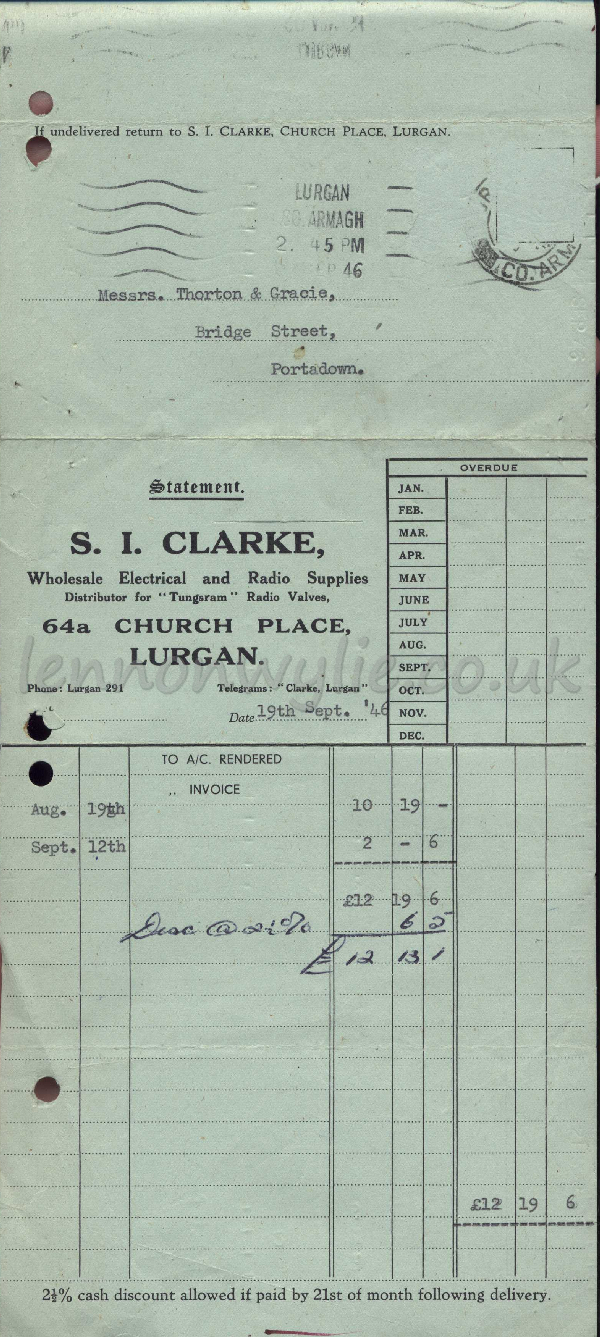 If undelivered return to S. I. CLARKE, CHURCH PLACE, LURGAN.
LURGAN
CO. ARMAGH
2. 45 PM
46
CO. ARM
Messrs. Thorton & Gracie,
Bridge Street,
Portadown.
Statement.
S. I. CLARKE,
Wholesale Electrical and Radio Supplies
Distributor for "Tungsram" Radio Valves,
64a CHURCH PLACE,
LURGAN.
Phone: Lurgan 291 Telegrams: "Clarke, Lurgan"
Date 19th Sept. '46
OVERDUE
JAN.
FEB.
MAR.
APR.
MAY
JUNE
JULY
AUG.
SEPT.
OCT.
NOV.
DEC.
lennonwylie.co.uk
TO A/C. RENDERED
,, INVOICE
Aug. 19th 10 19 -
Sept. 12th 2 - 6
£12 19 6
Disc @ 2½% 6 5
£ 12 13 1
£12 19 6
2½% cash discount allowed if paid by 21st of month following delivery.